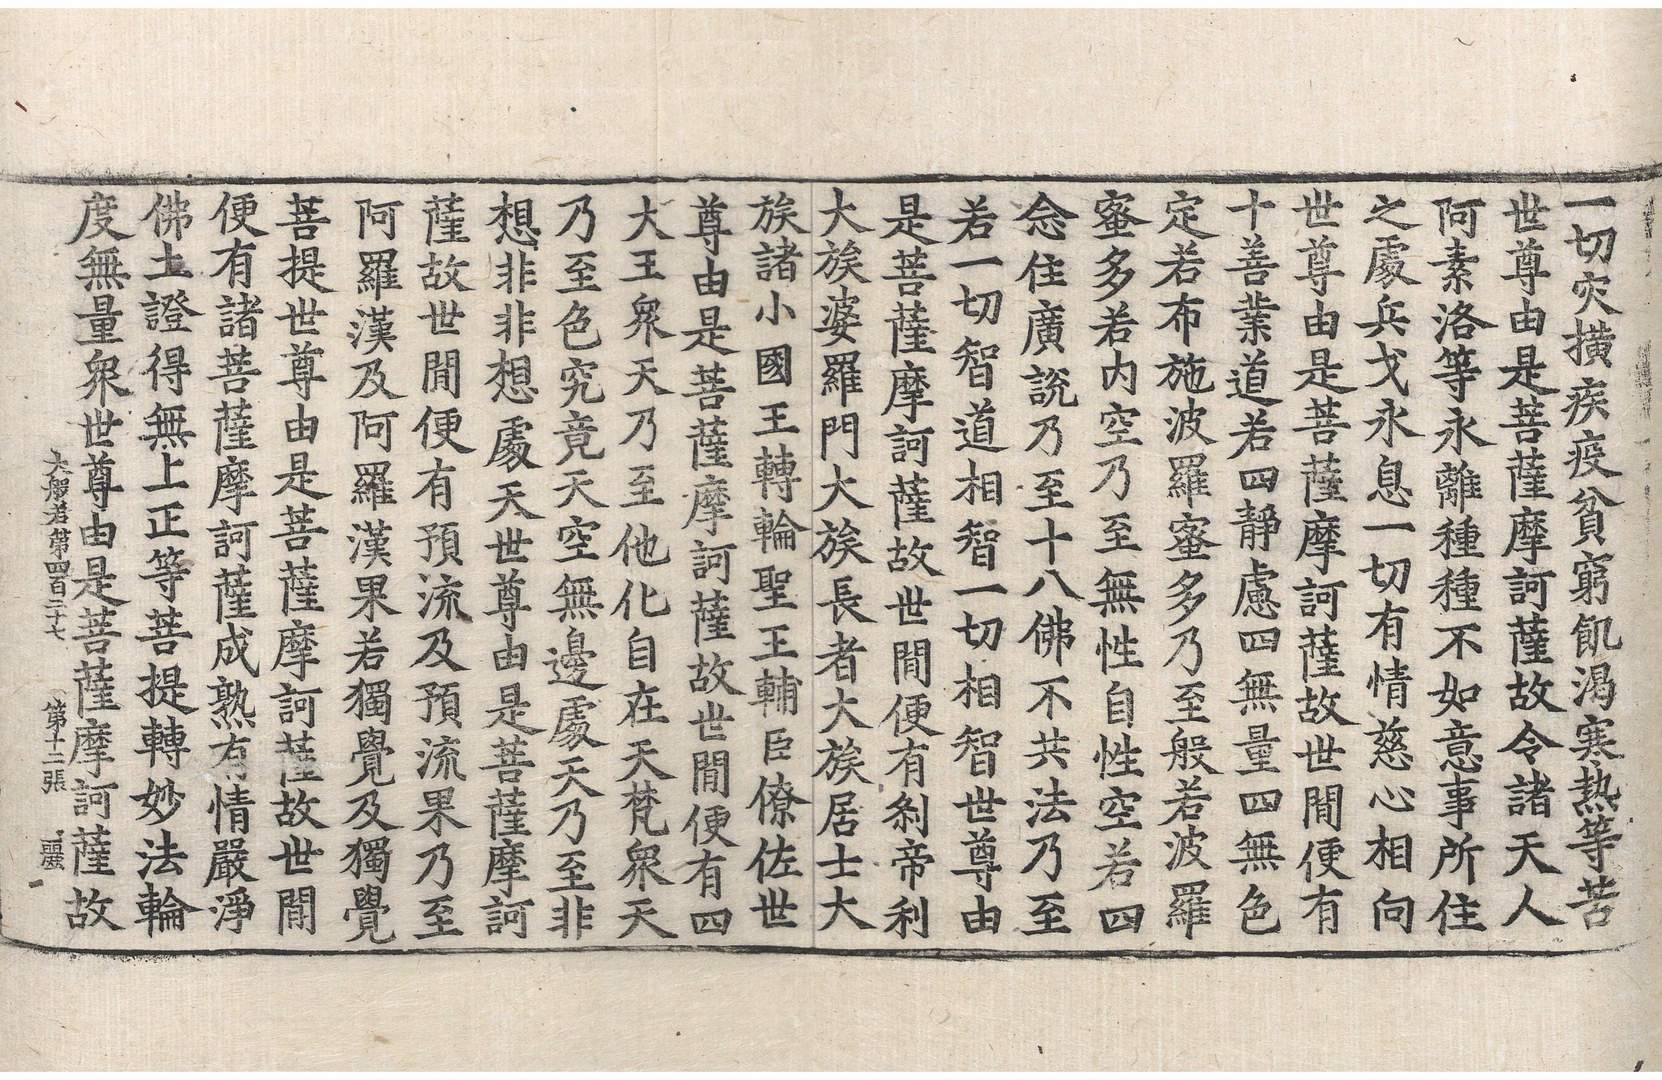 一切灾撗疾疫貧窮飢渴寒熱等苦
世尊由是菩薩摩訶薩故令諸天人
阿素洛等永離種種不如意事所住
之處兵戈永息一切有情慈心相向
世尊由是菩薩摩訶薩故世間便有
十善業道若四靜慮四無量四無色
定若布施波羅蜜多乃至般若波羅
蜜多若內空乃至無性自性空若四
念住廣說乃至十八佛不共法乃至
若一切智道相智一切相智世尊由
是菩薩摩訶薩故世間便有剎帝利
大族婆羅門大族長者大族居士大
族諸小國王轉輪聖王輔臣僚佐世
尊由是菩薩摩訶薩故世間便有四
大王衆天乃至他化自在天梵衆天
乃至色究竟天空無邊處天乃至非
想非非想處天世尊由是菩薩摩訶
薩故世間便有預流及預流果乃至
阿羅漢及阿羅漢果若獨覺及獨覺
菩提世尊由是菩薩摩訶薩故世間
便有諸菩薩摩訶薩成熟有情嚴淨
佛土證得無上正等菩提轉妙法輪
度無量衆世尊由是菩薩摩訶薩故
大般若第四百二十七 第十二張 麗